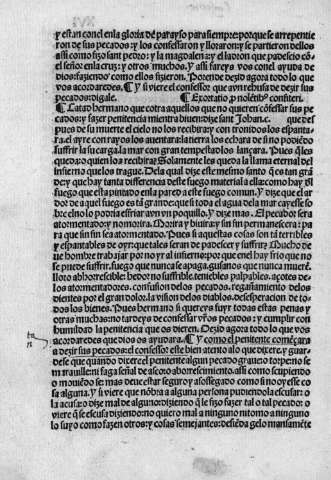 y estan con el en la gloria de parayso para siempre: porque se arrepentie
ron de sus pecados: y los confessaron y lloraron: y se partieron dellos
assi como fizo sant pedro: y la magdalena: y el ladron que padescio cõ
el señor en la cruz: y otros muchos. Y assi fareys vos con el ayuda de
dios: faziendo como ellos fizieron. Por ende dezid agora todo lo que
vos acordaredes. ¶ Y si viere el confessor que ayn rehusa de dezir sus
pecados: digale. ¶ Exortatio ꝑ nolẽtib9 confiteri.
Catad hermano que cõtra aquellos que no quieren cõfessar sus pe
cados: y fazer penitencia mientra biuen: dize sant Johan. que des
pues de su muerte el cielo no los recibira: y con tronidos los espanta
ra. el ayre con rayos los quemara: la tierra los echara de si no podiẽdo
suffrir la su carga la mar con gran tempestad os lançara. Pues q̃ les
queda: o quien los recibira? Solamente les queda la llama eternal del
infierno que los trague. De la qual dize este mesmo santo q̃ es tan grã
de: y que hay tanta differencia deste fuego material a ella: como hay dl
fuego que esta pintado en la pared a este fuego comun. Y dize que el ar
dor de aquel fuego es tã grande: que si toda el agua de la mar cayesse so
bre el no lo podria esfriar avn vn poquillo. Y dize mas. El pecador sera
atormentado: y no morira. Morira y biuira: y sin fin permanescera: pa
ra que sin fin sea atormentado. Pues si aquestas cosas son tã terribles
y espantables de oyr: que tales seran de padescer y suffrir? Mucho de
ue hombre trabajar por no yr al infierno: por que en el hay frio que no
se puede suffrir. fuego que nunca se apaga. gusanos que nunca muerẽ.
lloro aborrescible. hedor no suffrible. tenieblas palpables. açotes de
los atormentadores. confusion de los pecados. regañamiento de los
dientes por el gran dolor. la vision delos diablos. desesperacion de to
dos los bienes. Pues hermano si quereys fuyr todas estas penas y
otras muchas: no tardeys de confessar vr̃os pecados: y cumplir con
humildad la penitencia que os dieren. Dezid agora todo lo que vos
acordaredes que dios os ayudara. ¶ Y como el penitente começara
a dezir sus pecados: el confessor este bien atento alo que dixere. y guar
dese que quando dixere el penitente algun pecado graue o torpe no se
marauille: ni faga señal de asco: o aborrescimiento. assi como escupiendo
o mouiẽdo se: mas deue estar seguro y assossegado como si no oyesse co
sa alguna. Y si viere que nõbra a alguna persona pudiendo la escusar: o
la acusa: o dize mal de alguno: diziendo q̃ le fizo fazer tal o tal pecado: o
viere q̃ se escusa diziendo: no quiero mal a ninguno ni tomo a ninguno
lo suyo como fazen otros: y cosas semejantes: defiẽda gelo mansamẽte